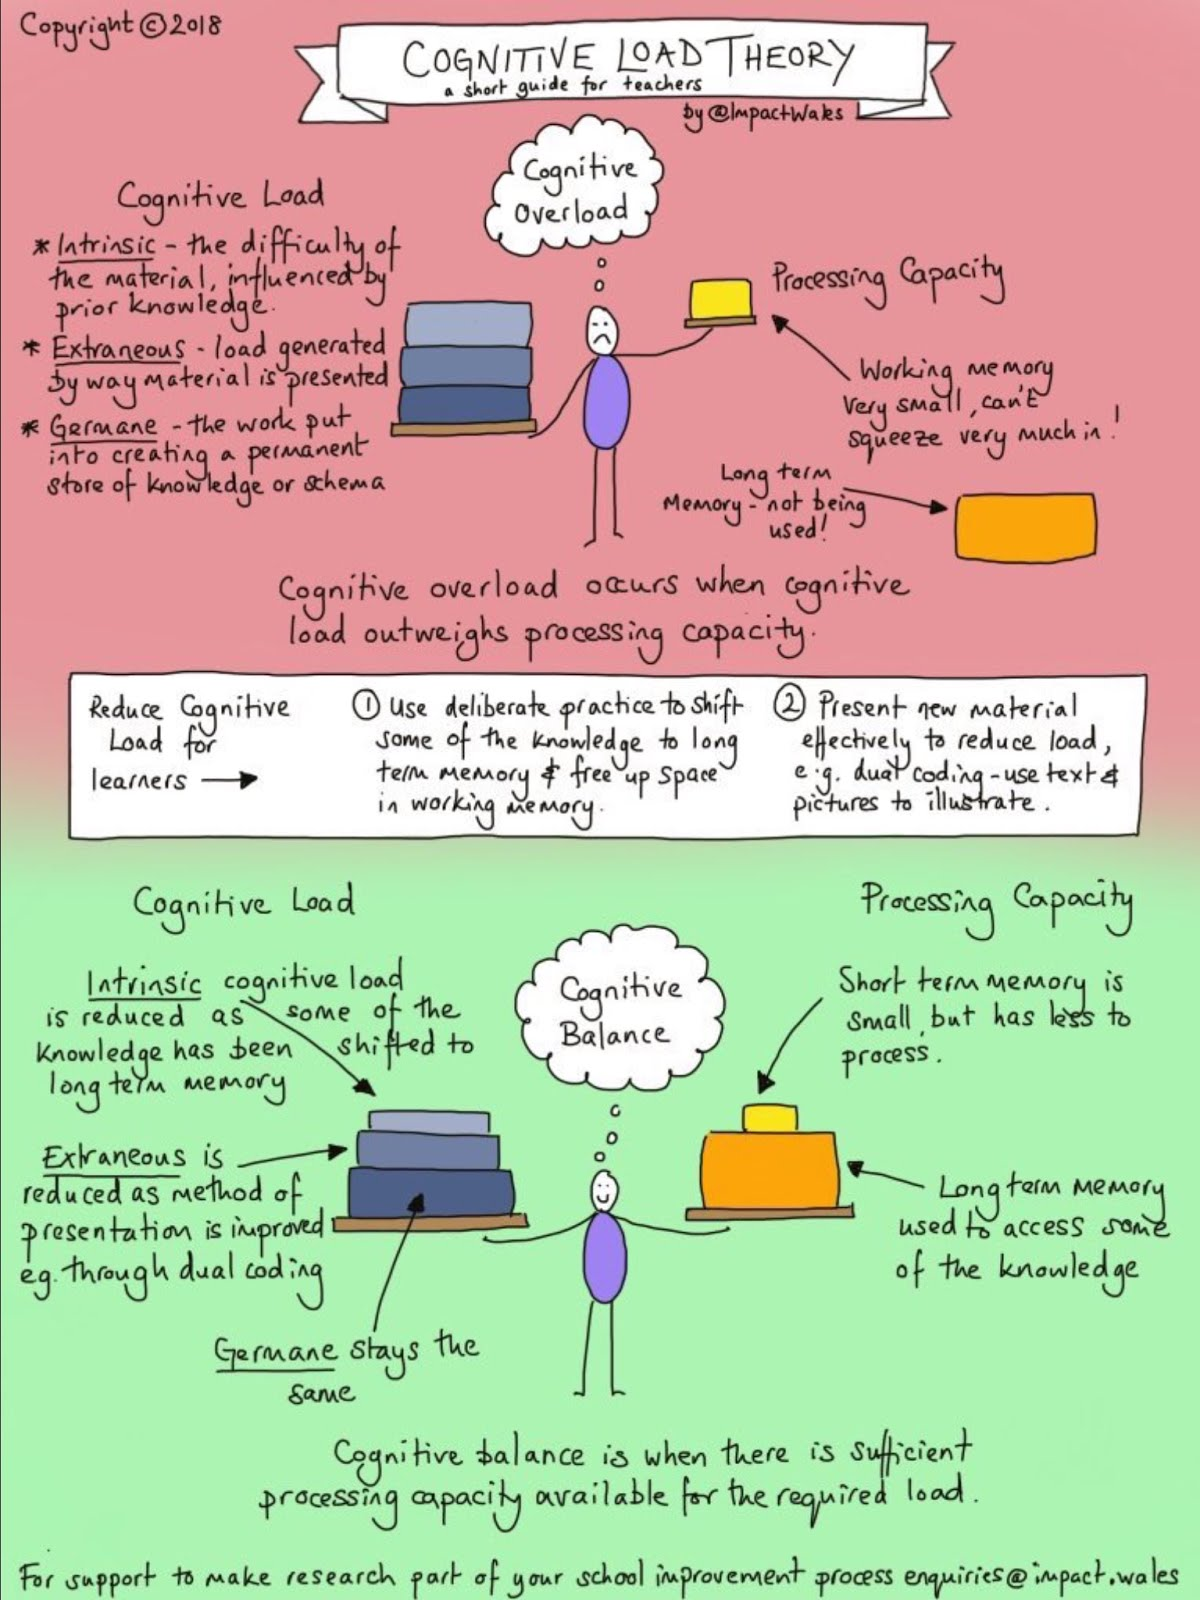 Copyright ©2018
COGNITIVE LOAD THEORY
a short guide for teachers
by @ImpactWales
Cognitive
Overload
Cognitive Load
* Intrinsic - the difficulty of
the material, influenced by
prior knowledge.
* Extraneous - load generated
by way material is presented
* Germane - the work put
into creating a permanent
store of knowledge or schema
Processing Capacity
Working memory
very small, can't
squeeze very much in!
Long term
Memory - not being
used!
Cognitive overload occurs when cognitive
load outweighs processing capacity.
Reduce Cognitive
Load for
learners →
① Use deliberate practice to shift
some of the knowledge to long
term memory & free up space
in working memory.
② Present new material
effectively to reduce load,
e.g. dual coding - use text &
pictures to illustrate.
Cognitive Load
Intrinsic cognitive load
is reduced as some of the
knowledge has been shifted to
long term memory
Extraneous is
reduced as method of
presentation is improved
eg. through dual coding
Germane stays the
same
Cognitive
Balance
Processing Capacity
Short term memory is
small, but has less to
process.
Long term memory
used to access some
of the knowledge
Cognitive balance is when there is sufficient
processing capacity available for the required load.
For support to make research part of your school improvement process enquiries@impact.wales